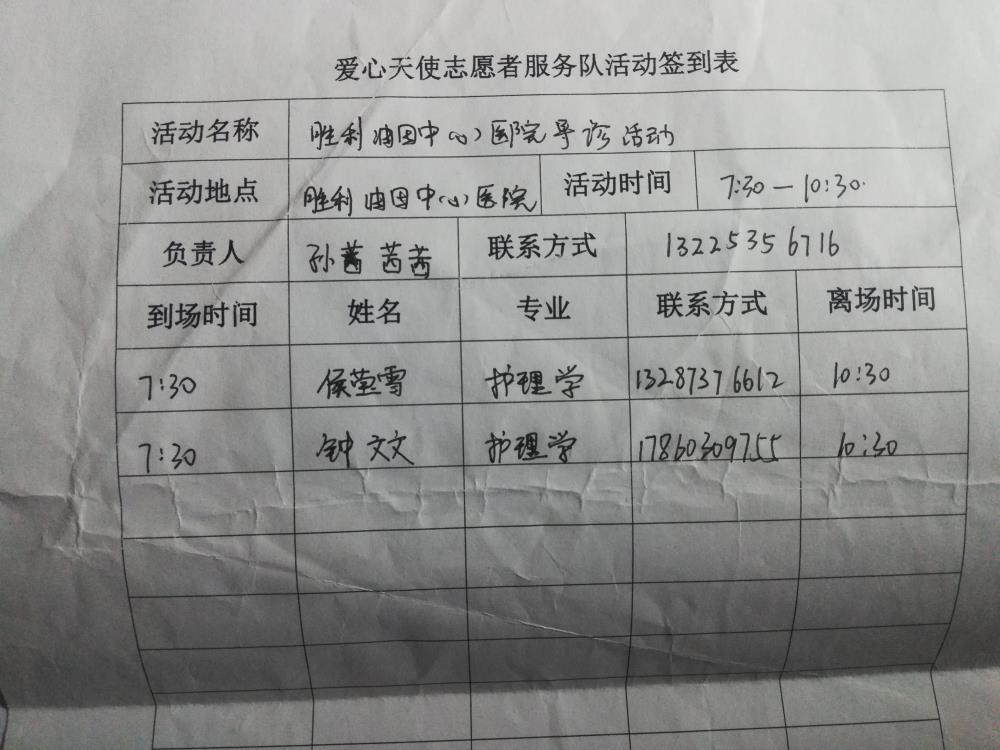 爱心天使志愿者服务队活动签到表
活动名称 胜利油田中心医院导诊活动
活动地点 胜利油田中心医院 活动时间 7:30—10:30.
负责人 孙茜茜 联系方式 13225356716
到场时间 姓名 专业 联系方式 离场时间
7:30 侯莹雪 护理学 13287376612 10:30
7:30 钟文文 护理学 17860309755 10:30